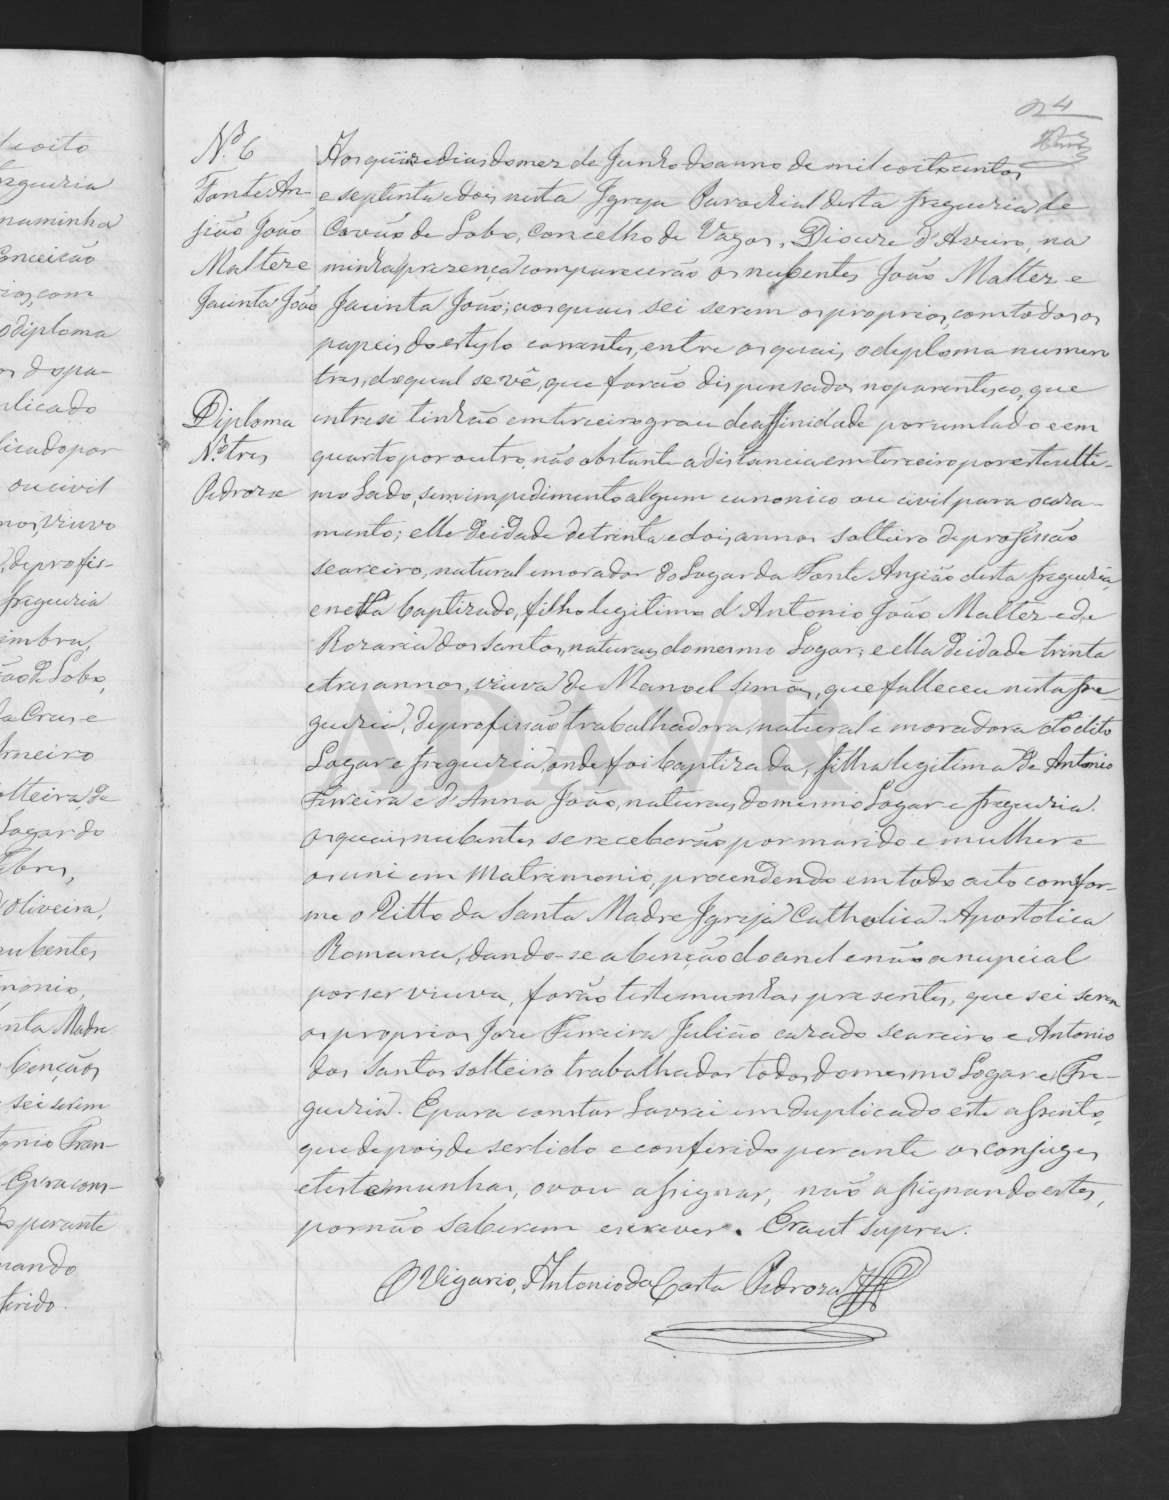 4
N.º 6
Fonte An-
gião João
Malteze
Jacinta João
Diploma
N.º tres
Pedroza
Aos quinze dias do mez de Junho do anno de mil oito centos
e septenta e dois nesta Igreja Parochial desta freguezia de
Covão do Lobo, Concelho de Vagos, Diocese d'Aveiro, na
minha presença comparecerão os nubentes João Maltez e
Jacinta João; aos quaes sei serem os proprios, com todos os
papeis do estylo correntes, entre os quaes, o deploma numero
tres, do qual se vê, que forão dispensados no parentesco, que
entre si tinhão em terceiro grau de affinidade por um lado e em
quarto por outro, não obstante a distancia em terceiro por este ulti-
mo Lado, sem impedimento algum canonico ou civil para o caza-
mento; elle de idade de trinta e dois annos solteiro de profissão
seareiro, natural e morador do Lugar da Fonte Angião desta freguezia,
e nella baptizado, filho legitimo d'Antonio João Maltez e de
Rozaria dos Santos, naturaes do mesmo Logar; e ella de idade trinta
e tres annos, viuva de Manoel Simões, que falleceu nesta fre-
guezia, de profissão trabalhadora, natural e moradora do dito
Logar e freguezia, onde foi baptizada, filha legitima de Antonio
Ferreira e d'Anna João, naturaes do mesmo Logar e freguezia.
os quaes nubentes se receberão por marido e mulher e
os uni em Matrimonio, procendendo em todo acto comfor-
me o Ritto da Santa Madre Igreja Catholica Apostolica
Romana, dando-se a benção do anel e não a nupcial
por ser viuva, forão testemunhas presentes, que sei serem
os proprios Joze Ferreira Julião cazado seareiro e Antonio
dos Santos solteiro trabalhador todos do mesmo Logar e Fre-
guezia. E para constar Lavrei em duplicado este assento,
que depois de ser lido e conferido perante os conjuges
e testemunhas, o vou assignar, não assignando estes,
por não saberem escrever. Era ut supra.
O Vigario, Antonio da Costa Pedroza
ADAVR